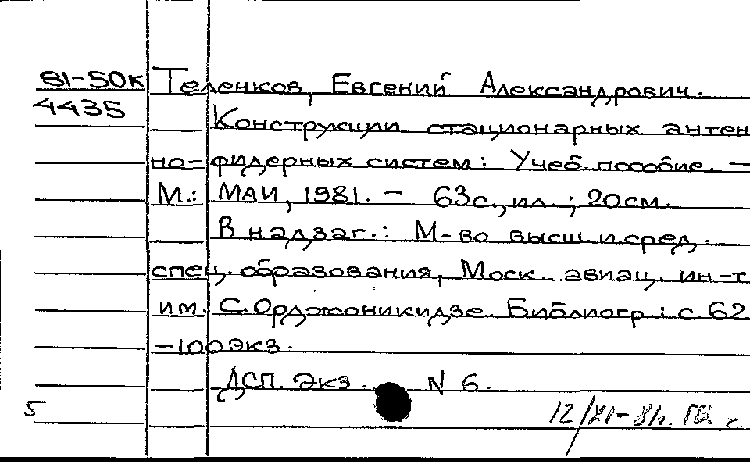 81-50к Теленков, Евгений Александрович.
4435 Конструкции стационарных антен
но-фидерных систем: Учеб. пособие. —
М.: МАИ, 1981. — 63с., ил.; 20см.
В надзаг.: М-во высш. и сред.
спец. образования, Моск. авиац. ин-т
им. С. Орджоникидзе. Библиогр.: с 62
-100экз.
ДСП. Экз. N 6.
5